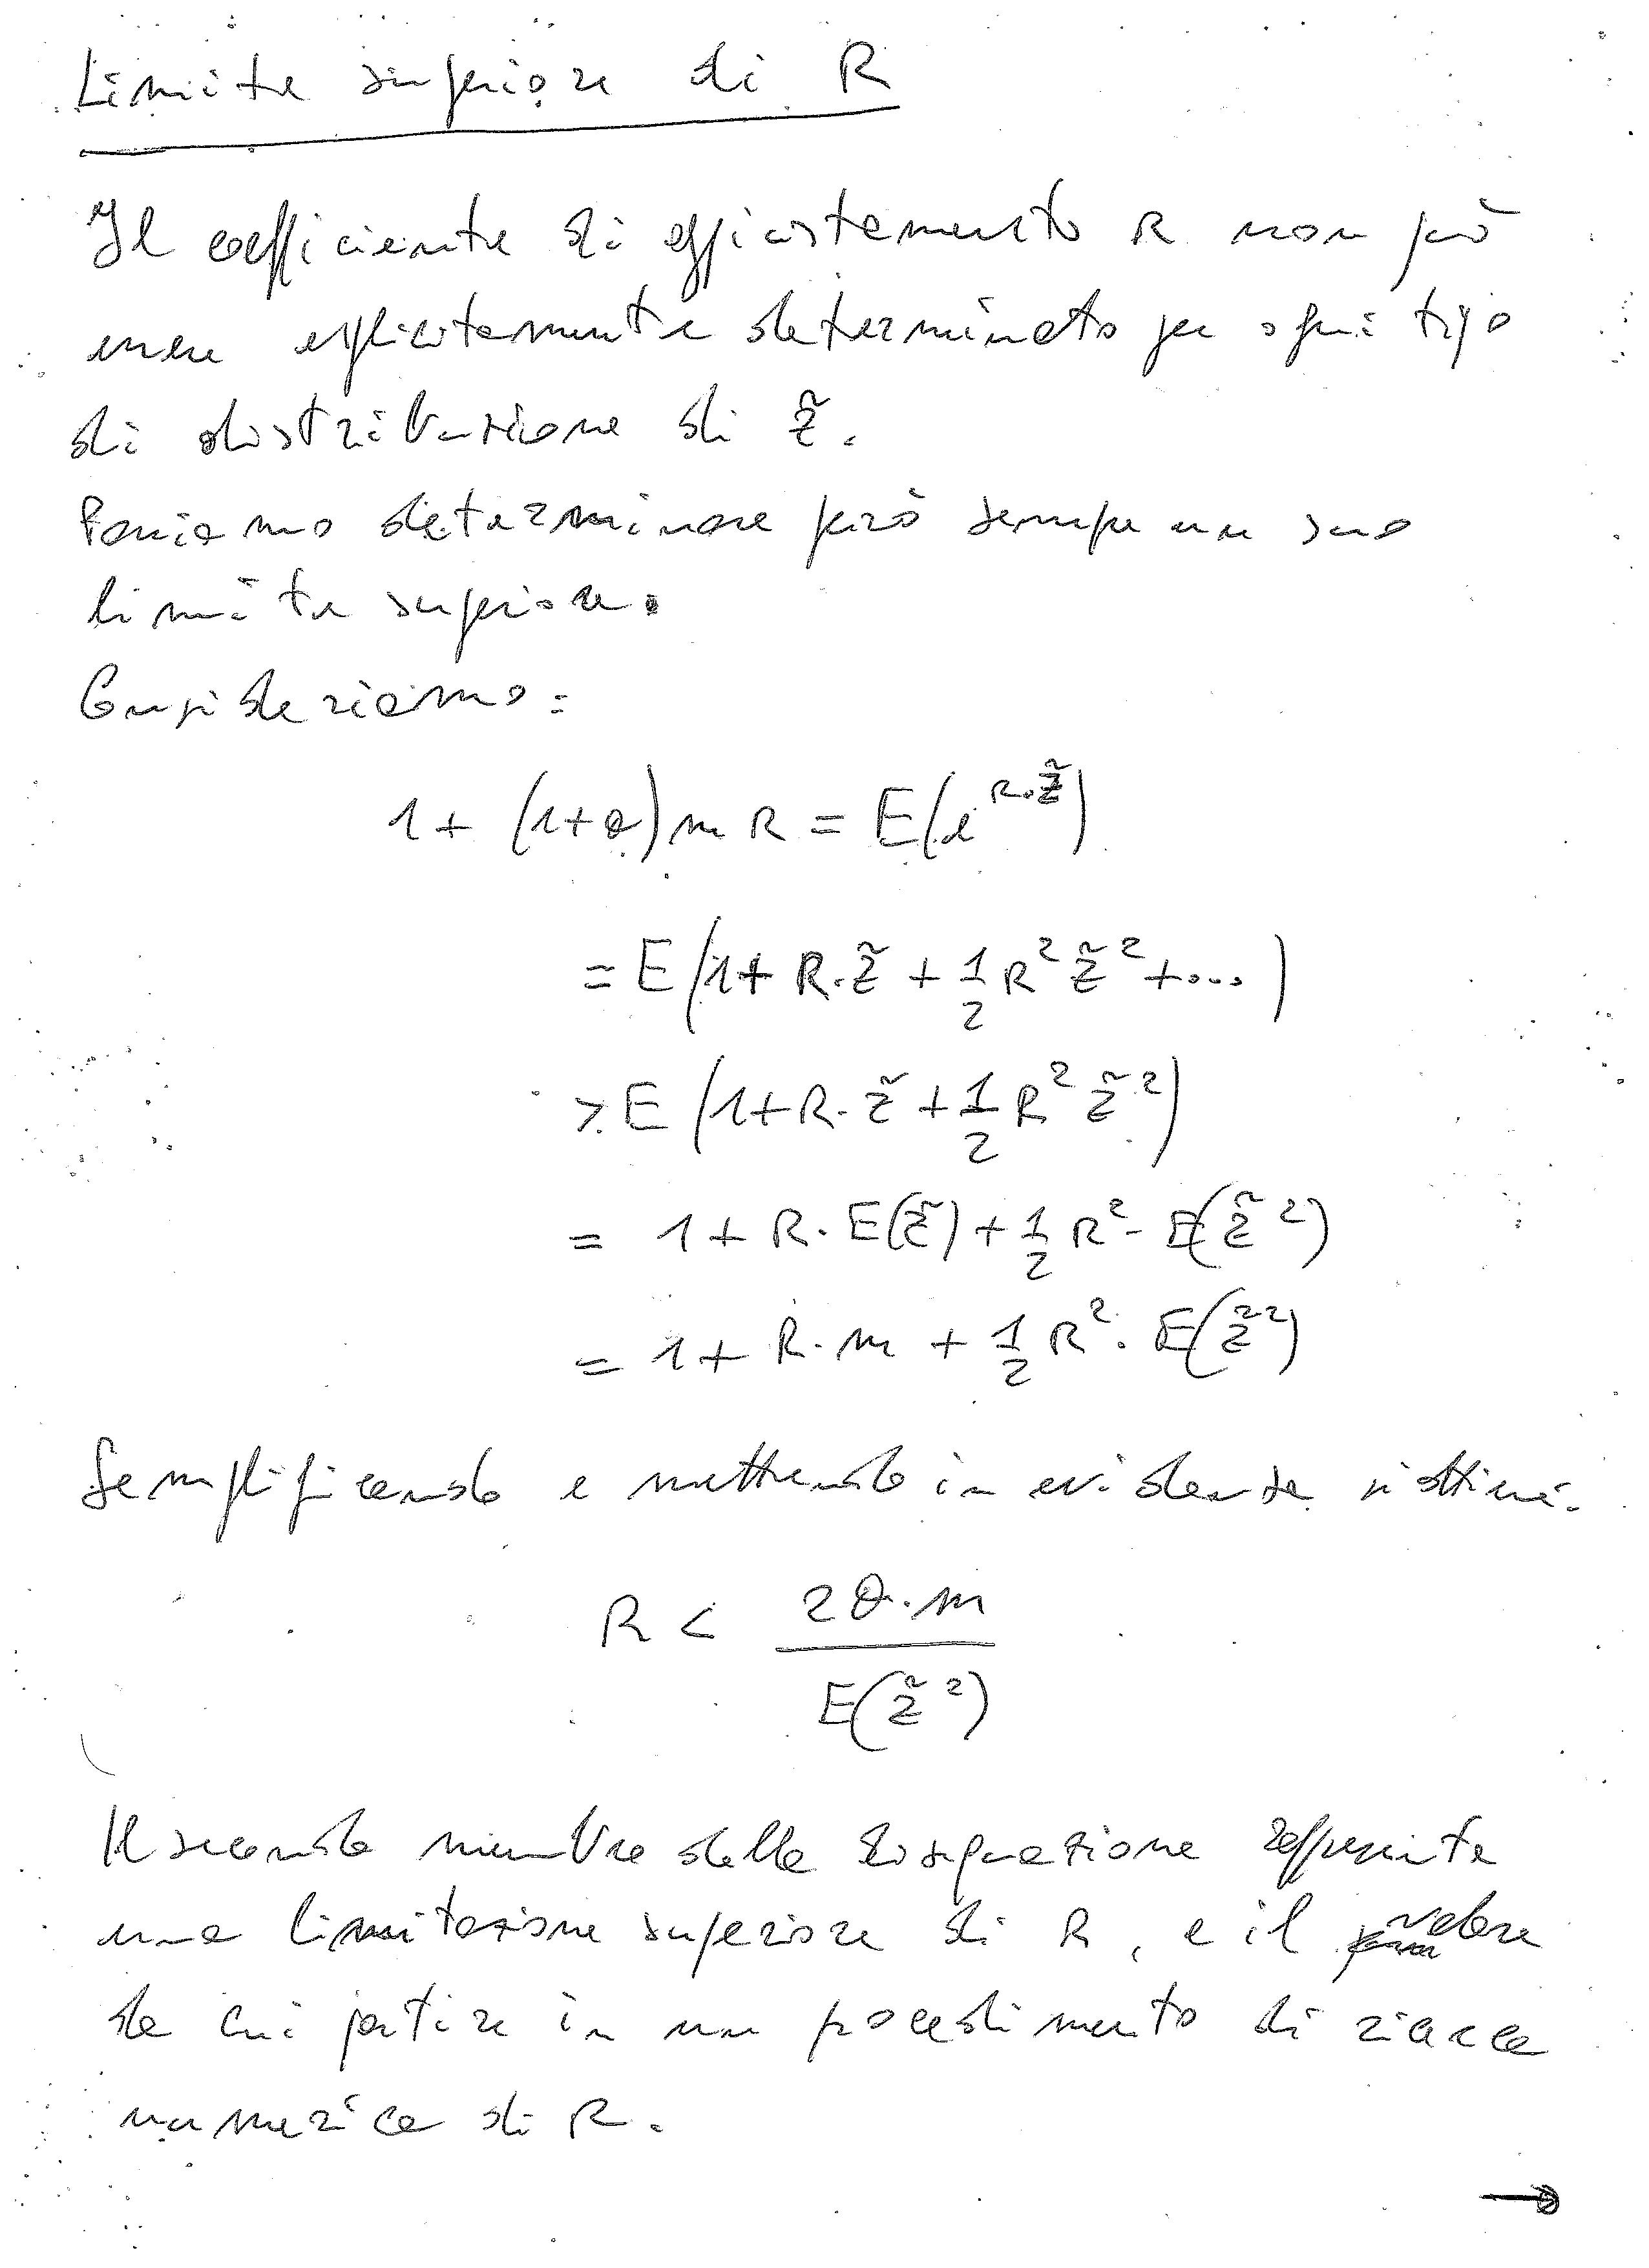 Limite superiore di R
Il coefficiente di aggiustamento R non può
essere esplicitamente determinato per ogni tipo
di distribuzione di z̃.
Possiamo determinare però sempre un suo
limite superiore.
Consideriamo:
1 + (1+θ) m R = E(e^{R·z̃})
= E(1 + R·z̃ + 1/2 R² z̃² + ...)
> E(1 + R·z̃ + 1/2 R² z̃²)
= 1 + R·E(z̃) + 1/2 R² · E(z̃²)
= 1 + R·m + 1/2 R² · E(z̃²)
Semplificando e mettendo in evidenza si ottiene:
R < 2θ·m / E(z̃²)
Il secondo membro della disequazione rappresenta
una limitazione superiore di R, e il valore
da cui partire in un procedimento di ricerca
numerica di R.
→